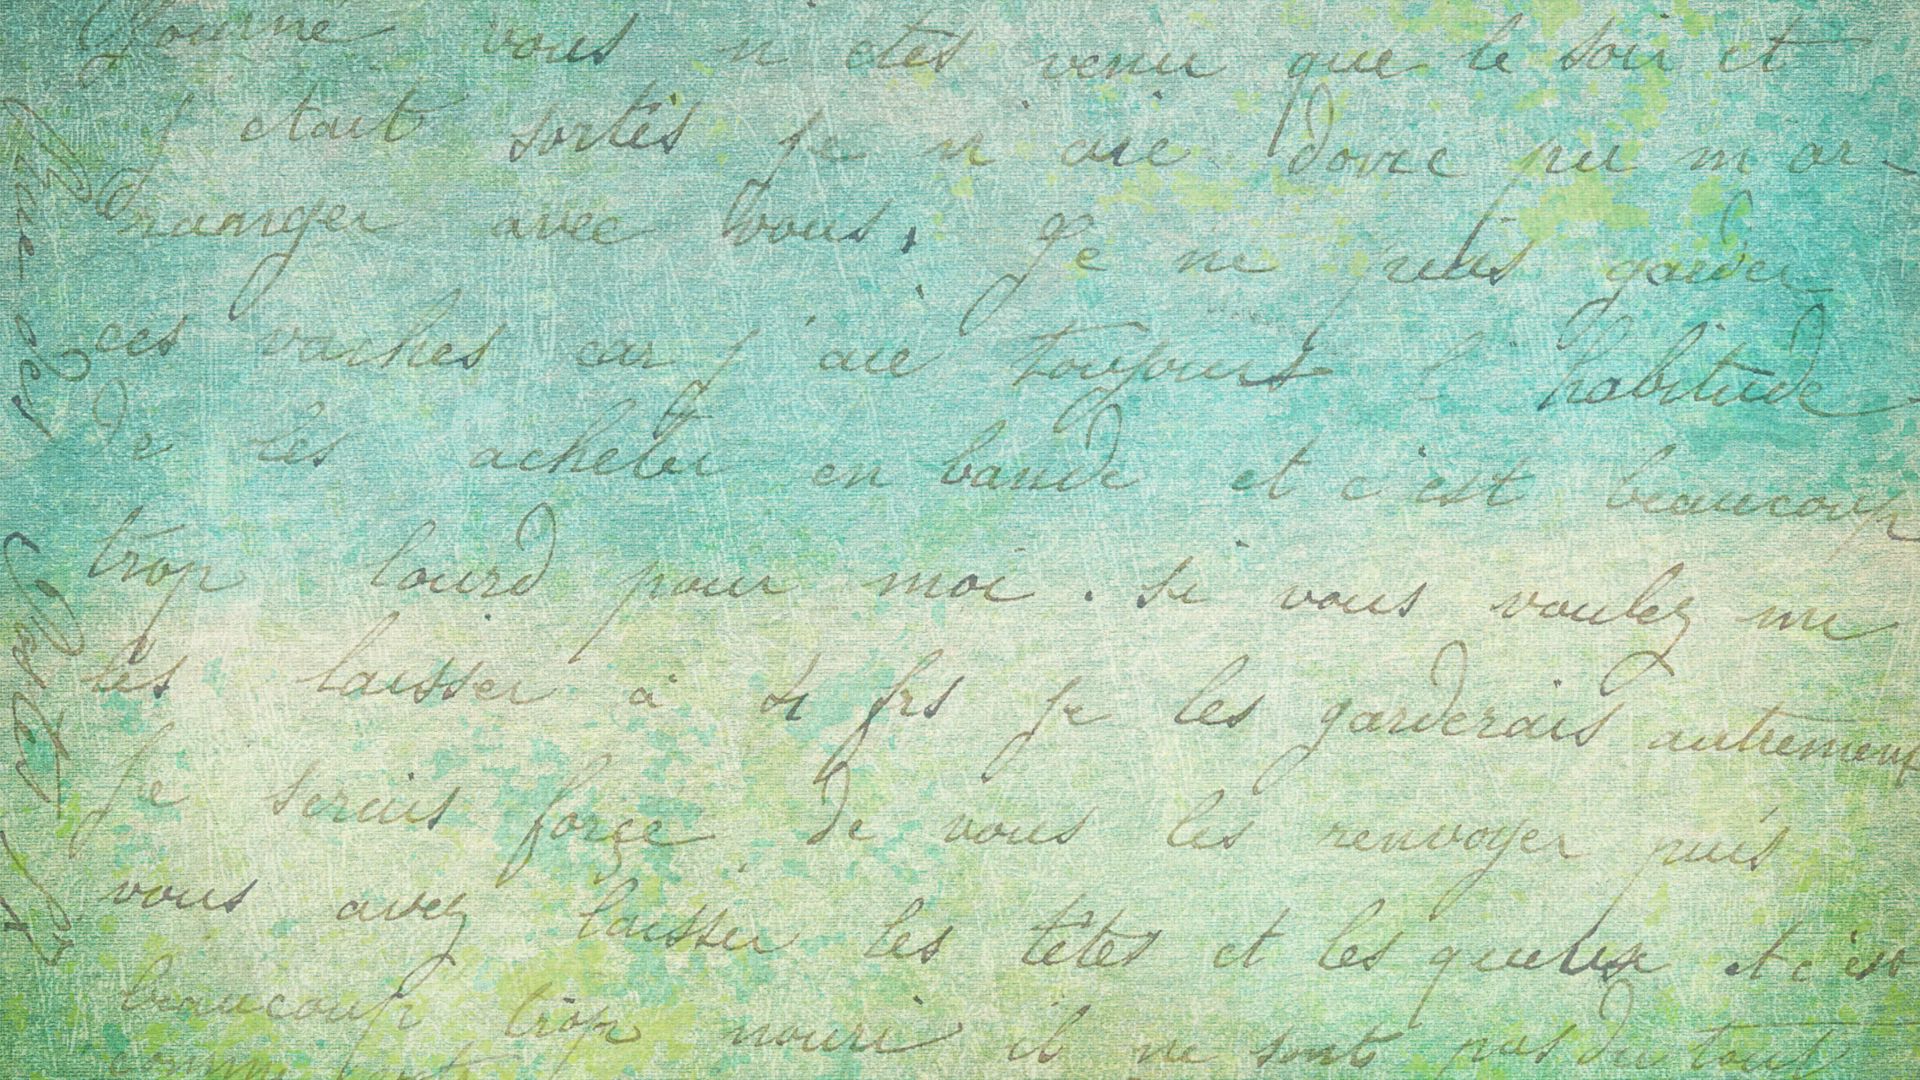 Journé vous n'etes venu que le soir et
j etait sortis je n aie donc pu m ar-
ranger avec vous. Je ne puis garder
ces vaches car j'aie toujours l'habitude
de les acheter en bande et c'est beaucoup
trop lourd pour moi. si vous voulez me
les laisser à frs je les garderais autrement
Je serais forçe de vous les renvoyer puis
vous avez laisser les têtes et les queux et c'est
beaucoup trop nouri il ne sont pas du tout
comme